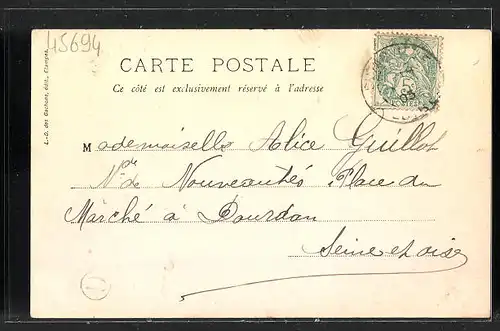 45694
L.-G. des Gachons, édit., Etampes.
CARTE POSTALE
Ce côté est exclusivement réservé à l'adresse
Mademoiselle Alice Guillot
Mde de Nouveautés Place du
Marché à Dourdan
Seine et oise